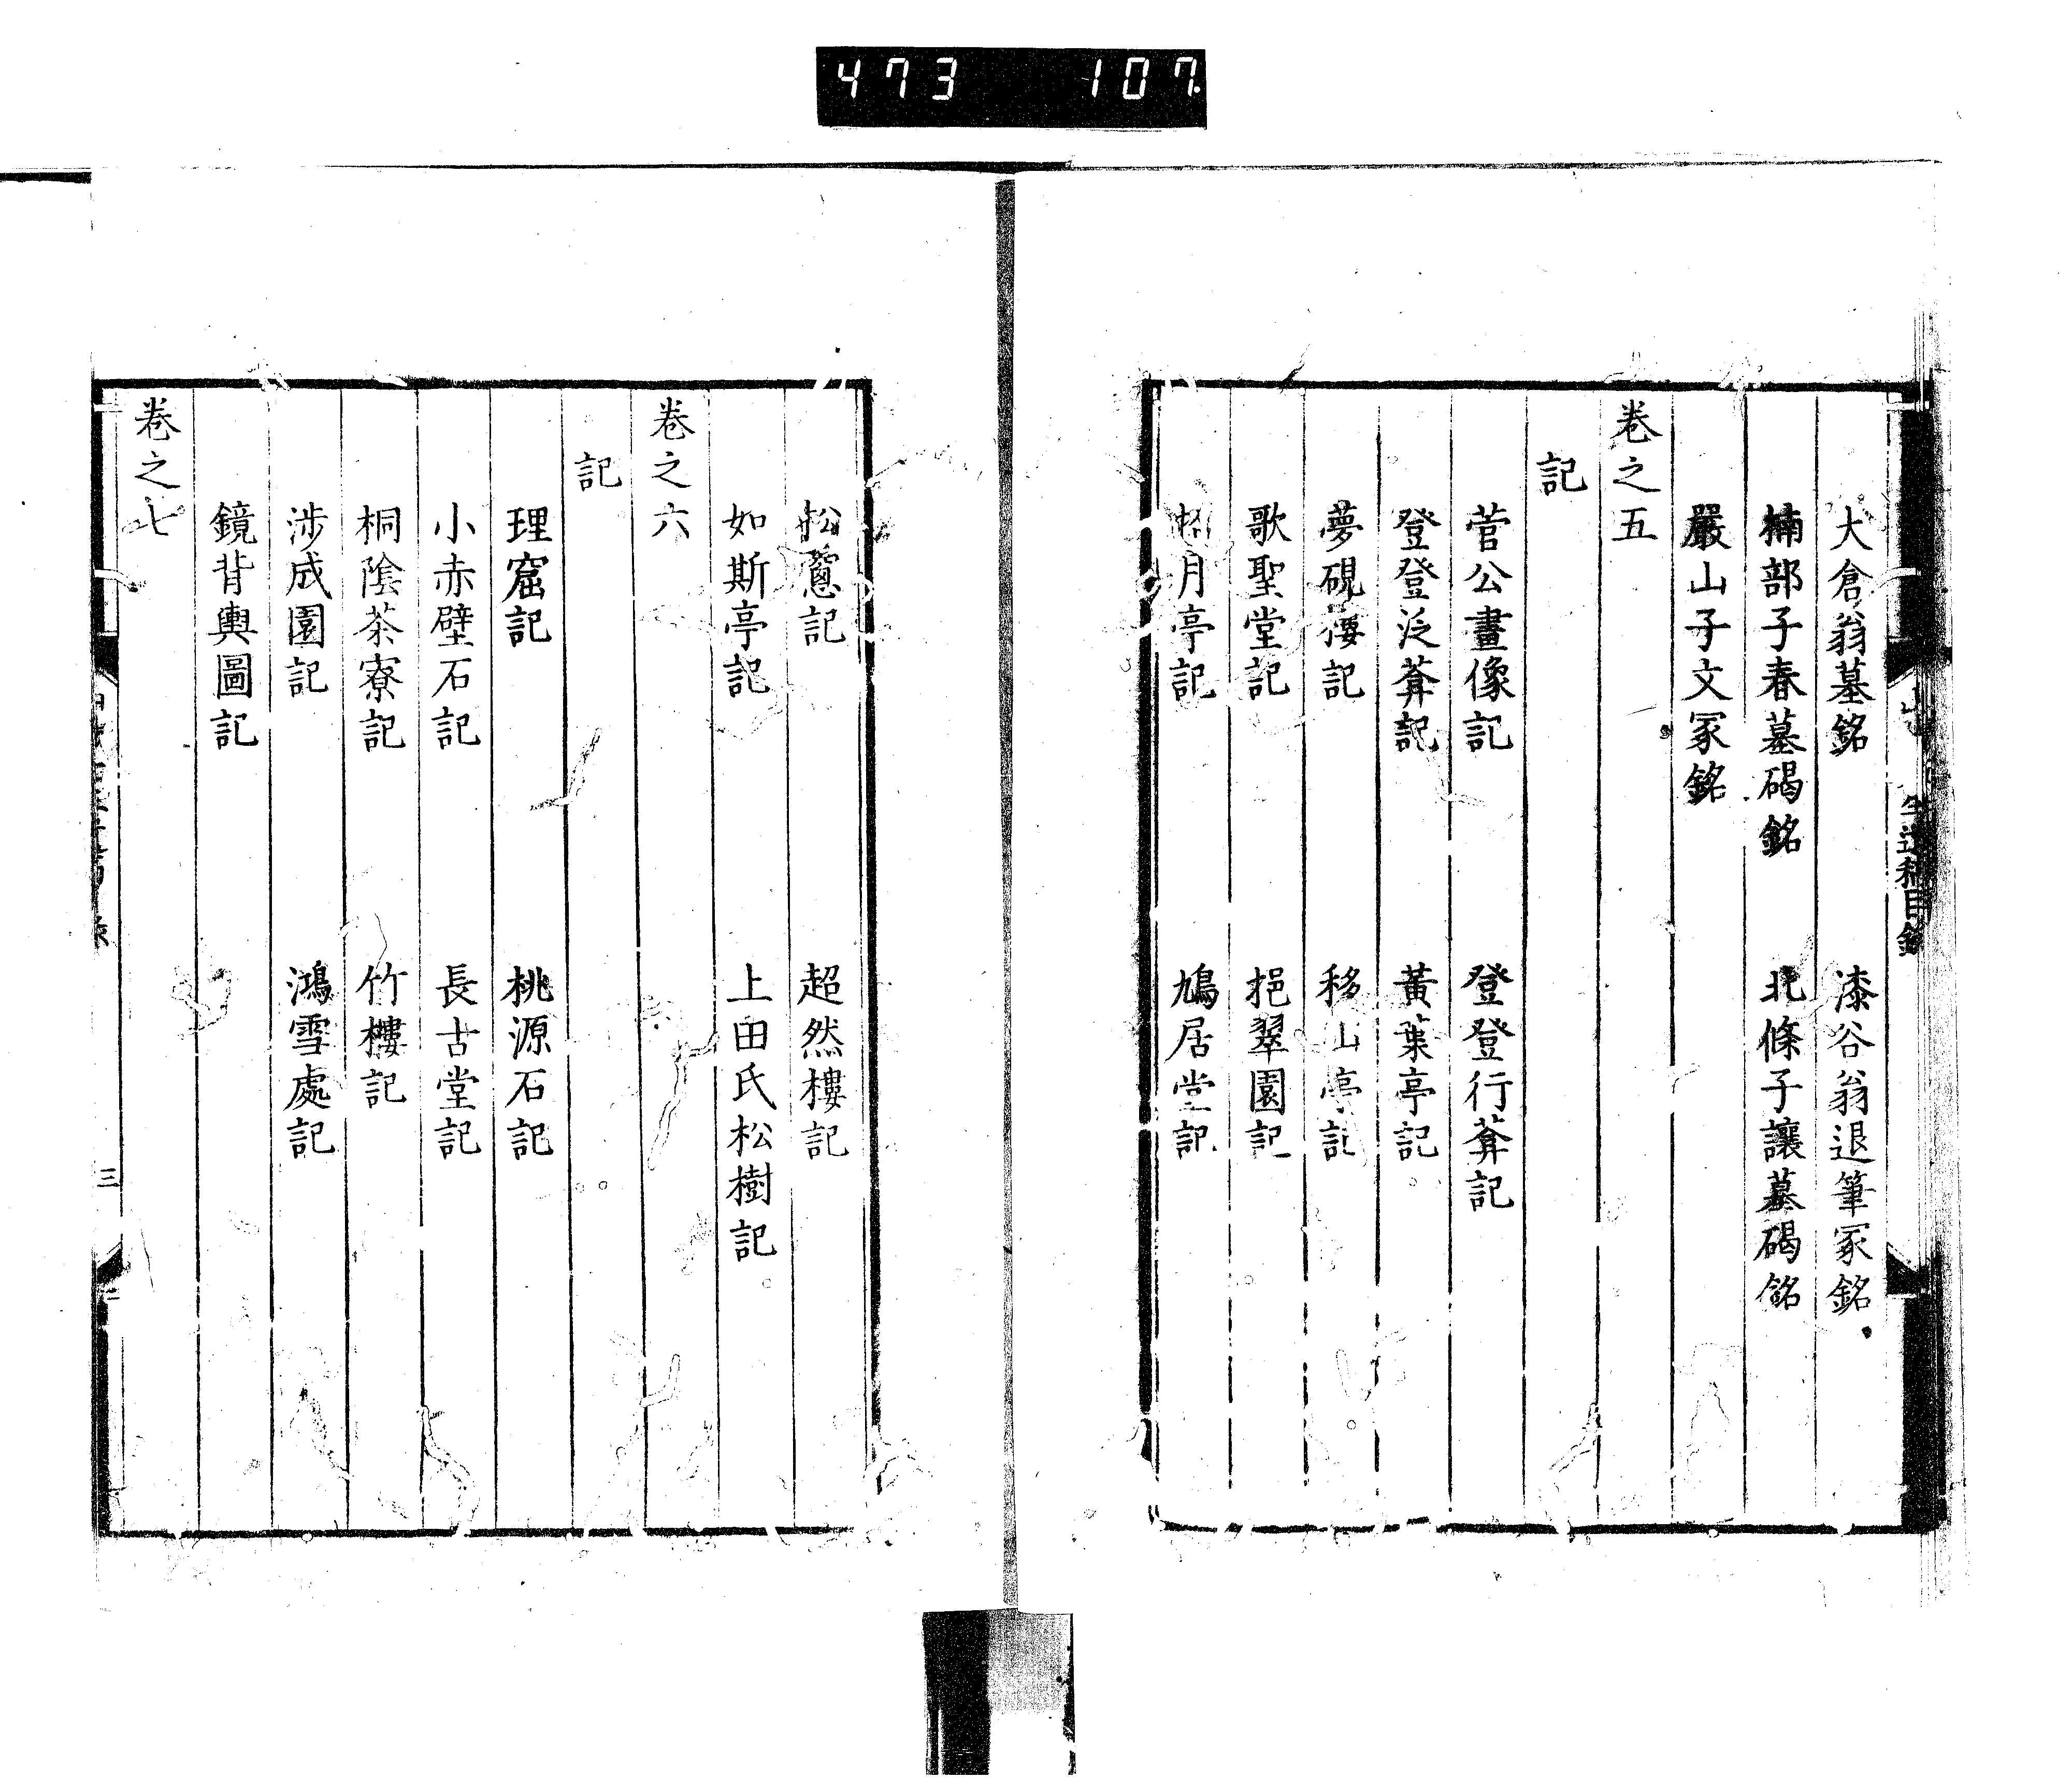 473 107
大倉翁墓銘 漆谷翁退筆冢銘
楠部子春墓碣銘 北條子讓墓碣銘
嚴山子文冢銘
卷之五
記
菅公畫像記 登登行葊記
登登泛葊記 黃葉亭記
夢硯樓記 移山亭記
歌聖堂記 挹翠園記
月亭記 鳩居堂記
松蔥記 超然樓記
如斯亭記 上田氏松樹記
卷之六
記
理窟記 桃源石記
小赤壁石記 長古堂記
桐陰茶寮記 竹樓記
涉成園記 鴻雪處記
鏡背輿圖記
卷之七
三